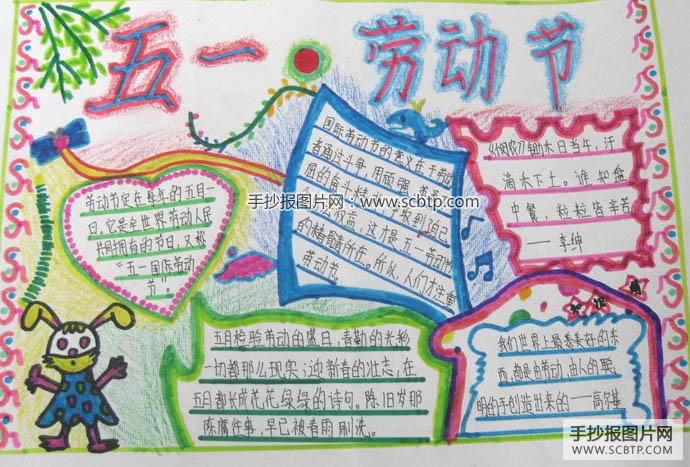 五一劳动节
劳动节定在每年的五月一
日。它是全世界劳动人民
共同拥有的节日,又被
“五一国际劳动
节”
国际劳动节的意义在于劳动
者通过斗争,用顽强、英勇不
屈的奋斗精神,争取到了自己
的合法权益,这才是五一劳动节
的精髓所在。所以,人们才注重
劳动节
手抄报图片网 www.scbtp.com
《悯农》锄禾日当午,汗
滴禾下土。谁知盘
中餐,粒粒皆辛苦
——李绅
五月检验劳动的盛日,春勤的光彩
一切都那么现实;迎新春的壮志,在
五月都长成花花绿绿的诗句。陈旧岁那
陈腐往事,早已被春雨刷洗。
我们世界上最美好的东
西,都是由劳动、由人的聪
明的手创造出来的——高尔基
手抄报图片网
WWW.SCBTP.COM